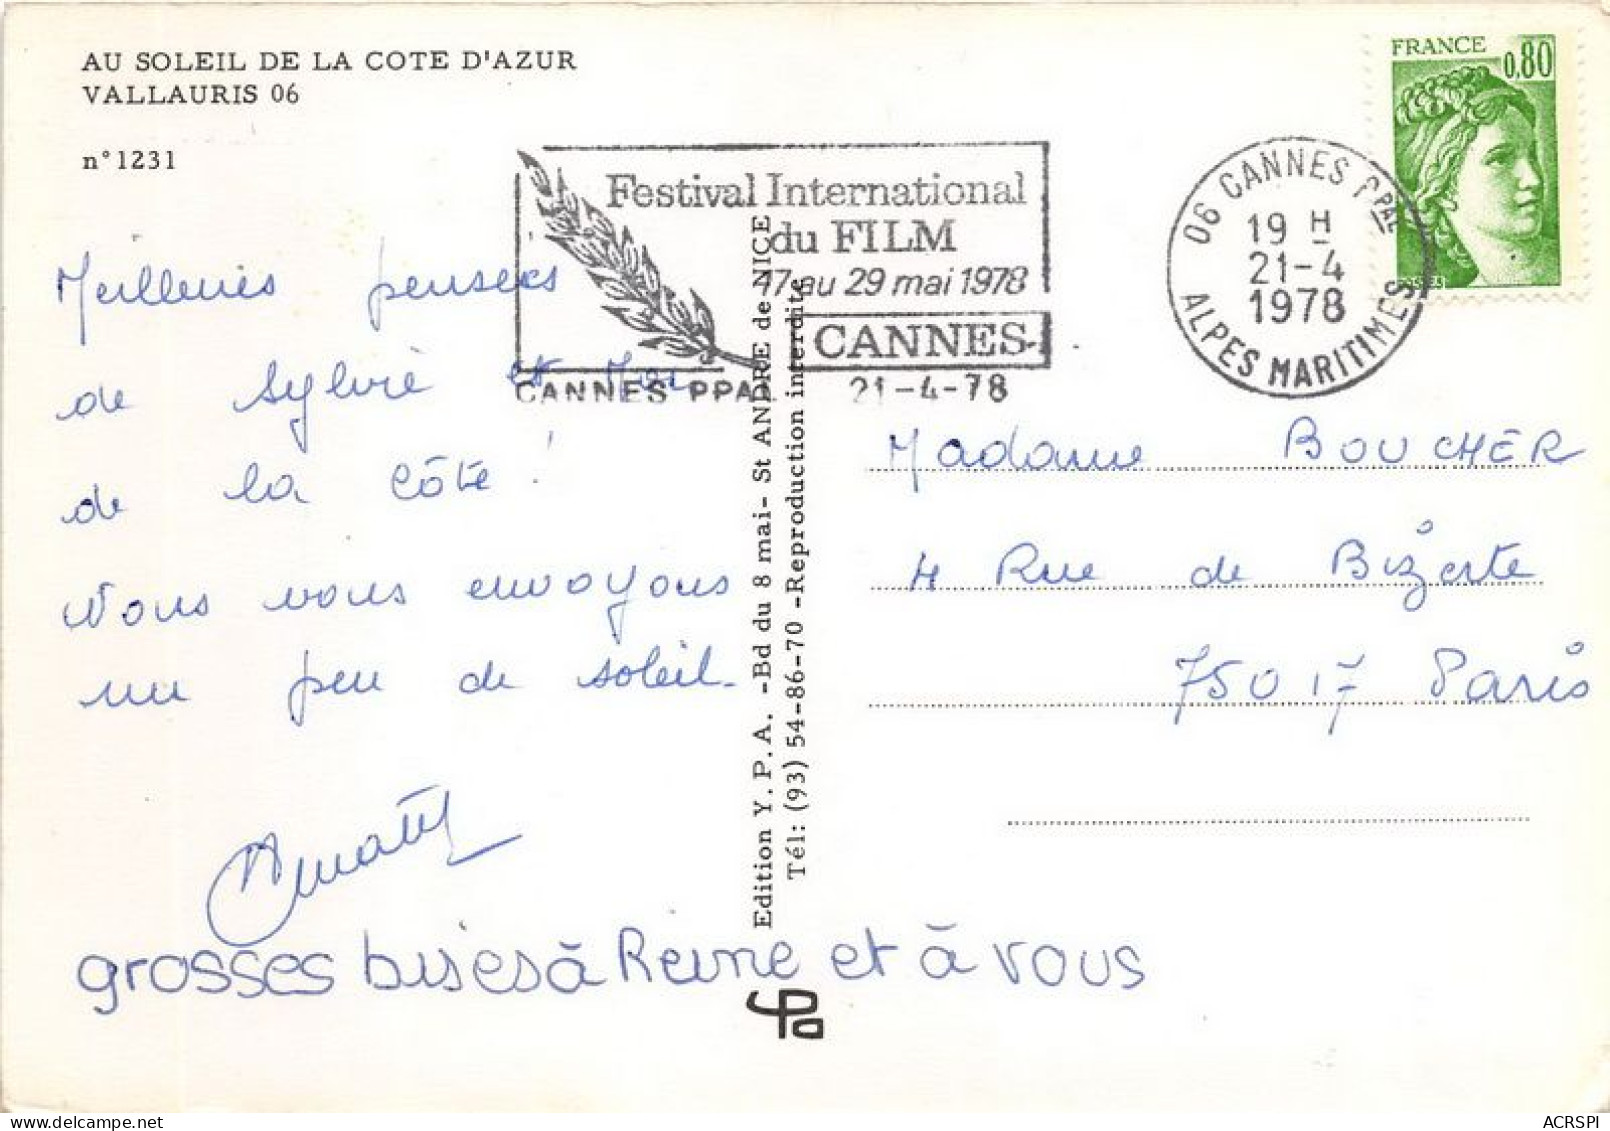 AU SOLEIL DE LA COTE D'AZUR
VALLAURIS 06
n°1231
FRANCE
0,80
Festival International
du FILM
17 au 29 mai 1978
CANNES
CANNES PPAL 21-4-78
06 CANNES PPAL
19 H
21-4
1978
ALPES MARITIMES
Meilleures pensées
de Sylvie et Moi
de la Côte !
Nous vous envoyons
un peu de soleil.
grosses bises à Reine et à vous
Edition Y.P.A. -Bd du 8 mai- St ANDRE de NICE
Tél: (93) 54-86-70 -Reproduction interdite
Madame BOUCHER
4 Rue de Bizerte
75017 Paris
ACRSPI